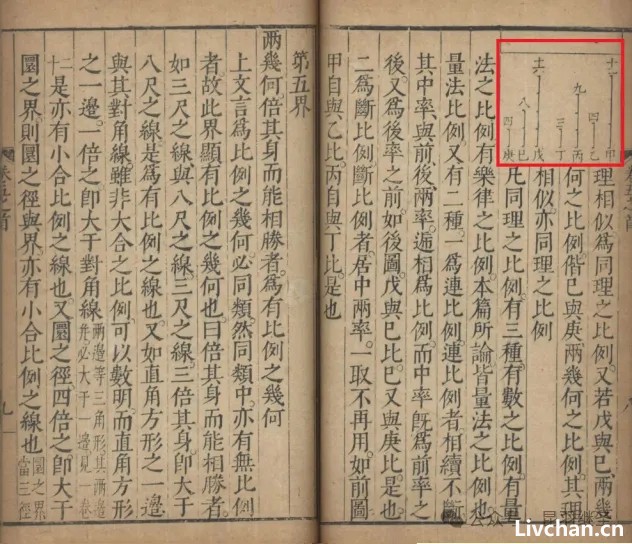 四
乙
九
丙
三
丁
戊
八
己
四
庚
理相似為同理之比例又若戊與己兩幾
何之比例偕己與庚兩幾何之比例其理
相似亦同理之比例
凡同理之比例有三種有數之比例有量
法之比例有樂律之比例本篇所論皆量法之比例也
量法比例又有二種一為連比例連比例者相續不斷
其中率與前後兩率遞相為比例而中率既為前率之
後又為後率之前如後圖戊與己比己又與庚比是也
二為斷比例斷比例者居中兩率一取不再用如前圖
甲自與乙比丙自與丁比是也
第五界
兩幾何倍其身而能相勝者為有比例之幾何
上文言為比例之幾何必同類然同類中亦有無比例
者故此界顯有比例之幾何也曰倍其身而能相勝者
如三尺之線與八尺之線三尺之線三倍其身即大于
八尺之線是為有比例之線也又如直角方形之一邊
與其對角線雖非大合比例可以數明而直角方形
之一邊一倍之即大于對角線兩邊等三角形其兩邊并必大于一邊見一卷
二十是亦有小合比例之線也又圜之徑四倍之即大于
圜之界則圜之徑與界亦有小合比例之線也圜之界當三徑
九
Livchan.cn